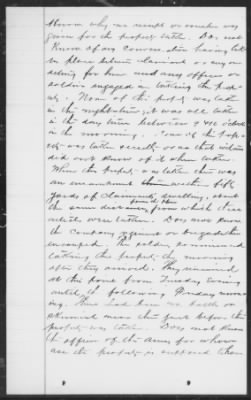 know why no receipt or voucher was
given for the property taken. Does not
know of any conversation having taken
place between claimant or any one
acting for him and any officer or
soldier engaged in taking the prop-
erty. None of the property was taken
in the night time, it was all taken
in the day time between
in the morning. None of the prop-
erty was taken secretly so that witness
did not know of it when taken.
When the property was taken there was
an encampment within fifty
yards of claimants dwelling, about
the same distance from which the
articles were taken. Does not know
the company regiment or brigade then
encamped. The soldiers commenced
taking the property the morning
after they arrived. They remained
at this point from Tuesday evening
until the following Friday morn-
ing. There had been no battle or
skirmish near the farm before the
property was taken. Does not know
the officer of the army for whose
use the property is supposed